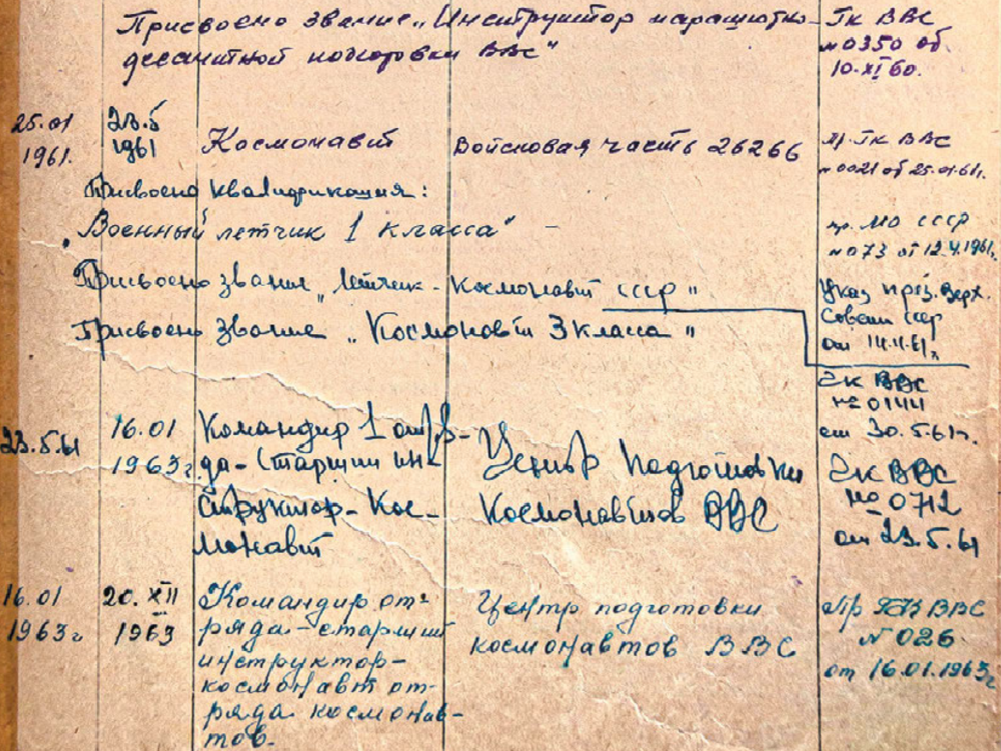 Присвоено звание „Инструктор парашютно-
десантной подготовки ВВС"
Гк ВВС
№0350 об
10.XI 60.
25.01
1961г.
23.5
1961
Космонавт
Войсковая часть 26266
Гк ВВС
№0021 об 25.01.61г.
Присвоена квалификация:
„Военный летчик 1 класса" –
пр. МО СССР
№073 от 12.4.1961г.
Присвоено звания „Летчик-Космонавт СССР"
Указ през. Верх.
Совета ССР
от 14.4.61г.
Присвоено звание „Космонавт 3 класса"
ГК ВВС
№ 0144
от 30.5.61г.
23.5.61
16.01
1963г.
Командир 1 отря-
да-Старший ин-
структор-Кос-
монавт
Центр Подготовки
Космонавтов ВВС
ГК ВВС
№ 0712
от 23.5.61
16.01
1963г
20.XII
1963
Командир от-
ряда-старший
инструктор-
космонавт от-
ряда космонав-
тов.
Центр подготовки
космонавтов ВВС
Пр ГК ВВС
№026
от 16.01.1963г